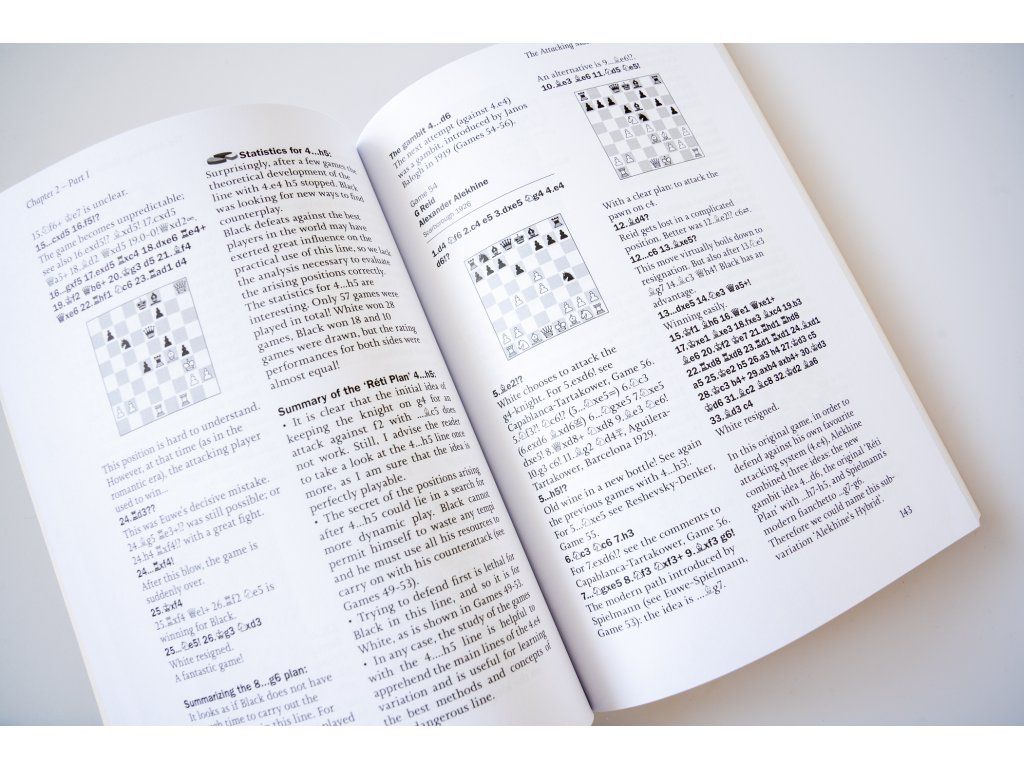 Chapter 2 – Part I
15.♘f6+ ♔e7 is unclear.
15...cxd5 16.f5!?
The game becomes unpredictable;
see also 16.exd5!? ♗xd5! 17.cxd5
♕a5+ 18.♗d2 ♕xd5 19.0-0! ♕xd2∞.
16...gxf5 17.cxd5 ♖xc4 18.dxe6 ♖e4+
19.♔f2 ♕b6+ 20.♔g3 d5 21.♗f4
♕xe6 22.♖hf1 ♘c6 23.♖ad1 d4
This position is hard to understand.
However, at that time (as in the
romantic era), the attacking player
used to win...
24.♖d3??
This was Euwe's decisive mistake.
24.♗g5 ♖e3+!? was still possible; or
24.h4 ♖xf4!? with a great fight.
24...♖xf4!
After this blow, the game is
suddenly over.
25.♔xf4
25.♖xf4 ♕e1+ 26.♖f2 ♘e5 is
winning for Black.
25...♘e5! 26.♔g3 ♘xd3
White resigned.
A fantastic game!
Summarizing the 8...g5 plan:
It looks as if Black does not have
time to carry out the
in this line. For
played
Statistics for 4...h5:
Surprisingly, after a few games the
theoretical development of the
line with 4.e4 h5 stopped. Black
was looking for new ways to find
counterplay.
Black defeats against the best
players in the world may have
exerted great influence on the
practical use of this line, so we lack
the analysis necessary to evaluate
the arising positions correctly.
The statistics for 4...h5 are
interesting. Only 57 games were
played in total! White won 28
games, Black won 18 and 10
games were drawn, but the rating
performances for both sides were
almost equal!
Summary of the 'Réti Plan' 4...h5:
• It is clear that the initial idea of
keeping the knight on g4 for an
attack against f2 with ...♗c5 does
not work. Still, I advise the reader
to take a look at the 4...h5 line once
more, as I am sure that the idea is
perfectly playable.
• The secret of the positions arising
after 4...h5 could lie in a search for
more dynamic play. Black cannot
permit himself to waste any tempi
and he must use all his resources to
carry on with his counterattack (see
Games 49-53).
• Trying to defend first is lethal for
Black in this line, and so it is for
White, as is shown in Games 49-53.
• In any case, the study of the games
with the 4...h5 line is helpful to
apprehend the main lines of the 4.e4
variation and is useful for learning
the best methods and concepts of
dangerous line.
The Attacking
The gambit 4...d6
The next attempt (against 4.e4)
was a gambit, introduced by Janos
Balogh in 1919 (Games 54-56).
Game 54
G Reid
Alexander Alekhine
Scarborough 1926
1.d4 ♘f6 2.c4 e5 3.dxe5 ♘g4 4.e4
d6!?
5.♗e2!?
White chooses to attack the
g4-knight. For 5.exd6! see
Capablanca-Tartakower, Game 56.
5.♘f3?! ♘c6!? (5...♘xe5=) 6.♘c3
(6.exd6 ♗xd6⩱) 6...♘gxe5 7.♘xe5
dxe5! 8.♕xd8+ ♘xd8 9.♗e3 ♘e6!
10.g3 c6! 11.♗g2 ♘d4∓, Aguilera-
Tartakower, Barcelona 1929.
5...h5!?
Old wine in a new bottle! See again
the previous games with 4...h5!.
For 5...♘xe5 see Reshevsky-Denker,
Game 55.
6.♘c3 ♘c6 7.h3
For 7.exd6! see the comments to
Capablanca-Tartakower, Game 56.
7...♘gxe5 8.♘f3 ♘xf3+ 9.♗xf3 g6!
The modern path introduced by
Spielmann (see Euwe-Spielmann,
Game 53): the idea is ...♗g7.
An alternative is 9...♗e6!?.
10.♗e3 ♗e6 11.♘d5 ♘e5!
With a clear plan: to attack the
pawn on c4.
12.♗d4?
Reid gets lost in a complicated
position. Better was 12.♗e2!? c6=.
12...c6 13.♗xe5?
This move virtually boils down to
resignation. But also after 13.♘e3
♗g7 14.♗c3 ♕h4! Black has an
advantage.
13...dxe5 14.♘e3 ♕a5+!
Winning easily.
15.♔f1 ♗h6 16.♕e1 ♕xe1+
17.♔xe1 ♗xe3 18.fxe3 ♗xc4 19.b3
♗e6 20.♔f2 ♔e7 21.♖hd1 ♖hd8
22.♖xd8 ♖xd8 23.♖d1 ♖xd1 24.♗xd1
a5 25.♗e2 b5 26.a3 h4 27.♗d3 c5
28.♗c3 b4+ 29.axb4 axb4+ 30.♔d3
♔d6 31.♗c2 ♗c8 32.♔d2 ♗a6
33.♗d3 c4
White resigned.
In this original game, in order to
defend against his own favourite
attacking system (4.e4), Alekhine
combined three ideas: the new
gambit idea 4...d6, the original 'Réti
Plan' with ...h7-h5, and Spielmann's
modern fianchetto ...g7-g6.
Therefore we could name this sub-
variation 'Alekhine's Hybrid'.
143